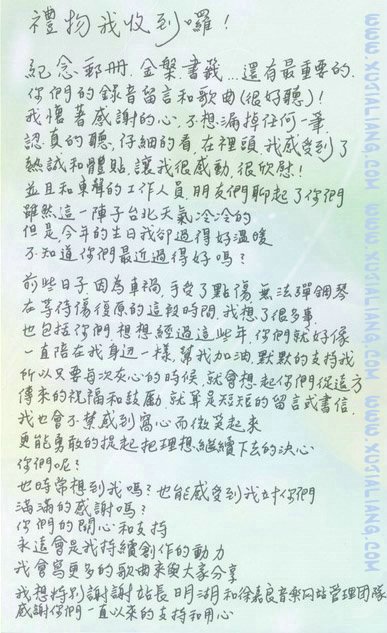 禮物我收到囉！
紀念郵冊．金槃書籤…還有最重要的．
你們的錄音留言和歌曲（很好聽）！
我懷著感謝的心，不想漏掉任何一筆，
認真的聽，仔細的看，在裡頭，我感受到了
熱誠和體貼，讓我很感動，很欣慰！
並且和東聲的工作人員，朋友們聊起了你們
雖然這一陣子台北天氣冷冷的
但是，今年的生日我卻過得好溫暖
不知道你們最近過得好嗎？
前些日子因為車禍，手受了點傷，無法彈鋼琴
在等待傷復原的這段時間，我想了很多事，
也包括你們，想想經過這些年，你們就好像
一直陪在我身辺一樣，幫我加油，默默的支持我
所以只要每次灰心的時候，就會想起你們從遠方
傳來的祝福和鼓勵，就算是短短的留言或書信，
我也會不禁感到窩心而微笑起來
更能勇敢的提起把理想繼續下去的決心
你們呢？
也時常想到我嗎？也能感受到我对你們
滿滿的感謝嗎？
你們的開心和支持
永遠會是我持續創作的動力
我會寫更多的歌曲來與大家分享
我想特別謝謝站長 明湖和徐嘉良音樂网站管理團隊
感謝你們一直以來的支持和用心
www.XUJIALIANG.COM
www.XUJIALIANG.COM